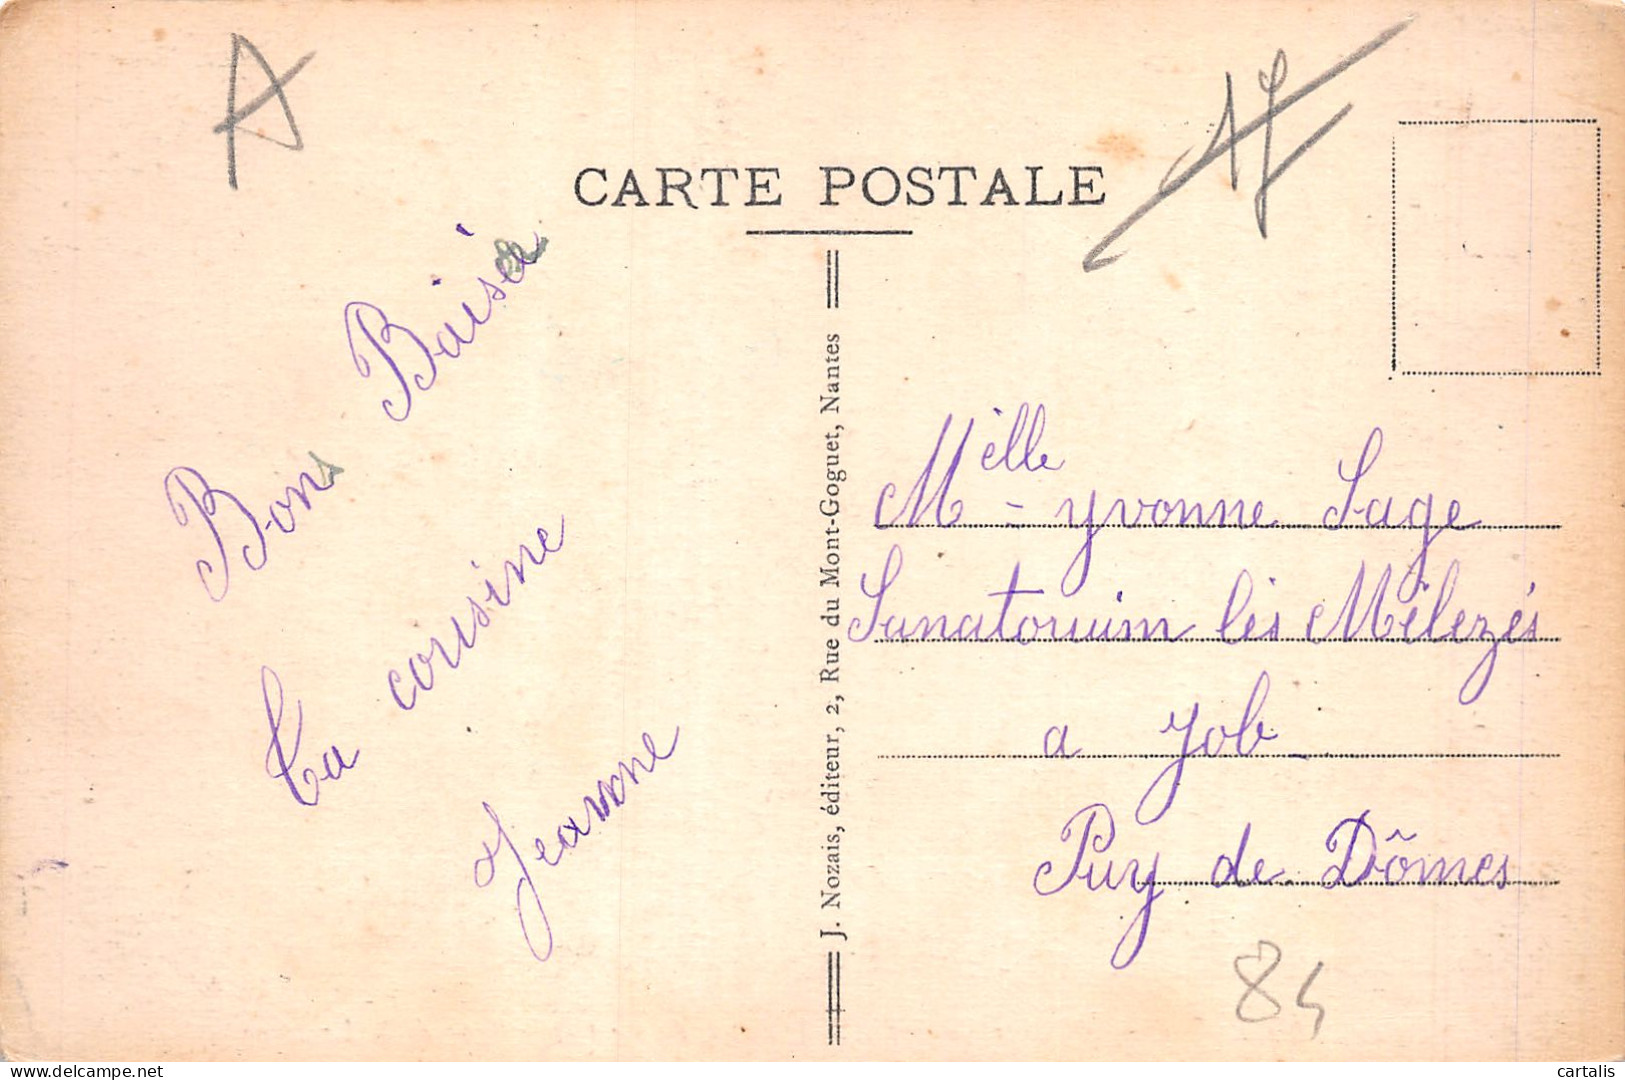 A
CARTE POSTALE
Bons Baisé
Ta cousine
Jeanne
J. Nozais, éditeur, 2, Rue du Mont-Goguet, Nantes
Melle - Yvonne Sage
Sanatorium lès Mélezés
a Job
Puy de Dômes
84
cartalis